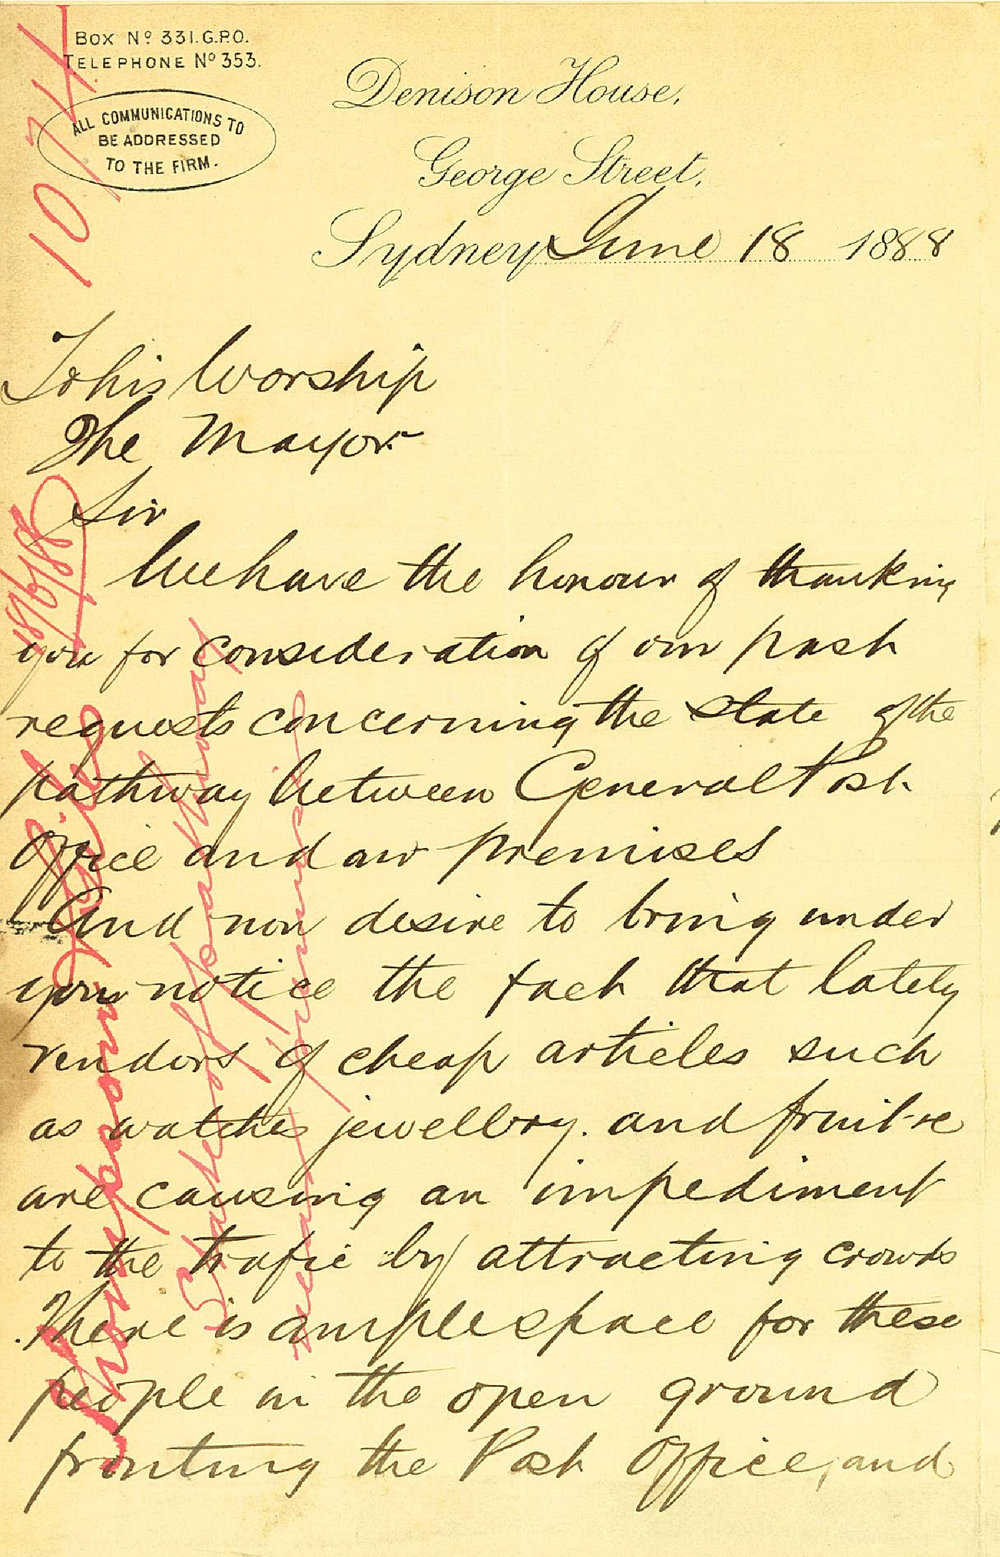 BOX Nº 331. G.P.O.
TELEPHONE Nº 353.
ALL COMMUNICATIONS TO
BE ADDRESSED
TO THE FIRM.
Denison House,
George Street,
Sydney June 18 1888
10/74
To his Worship
The Mayor
Sir
We have the honour of thanking
you for consideration of our past
requests concerning the state of the
pathway between General Post
Office and our premises
And now desire to bring under
your notice the fact that lately
vendors of cheap articles such
as watches jewellbry. and fruit
are causing an impediment
to the trafic by attracting crowds
There is ample space for these
people in the open ground
fronting the Post Office, and
18/6/88
Thompson &
State of pathway
near premises